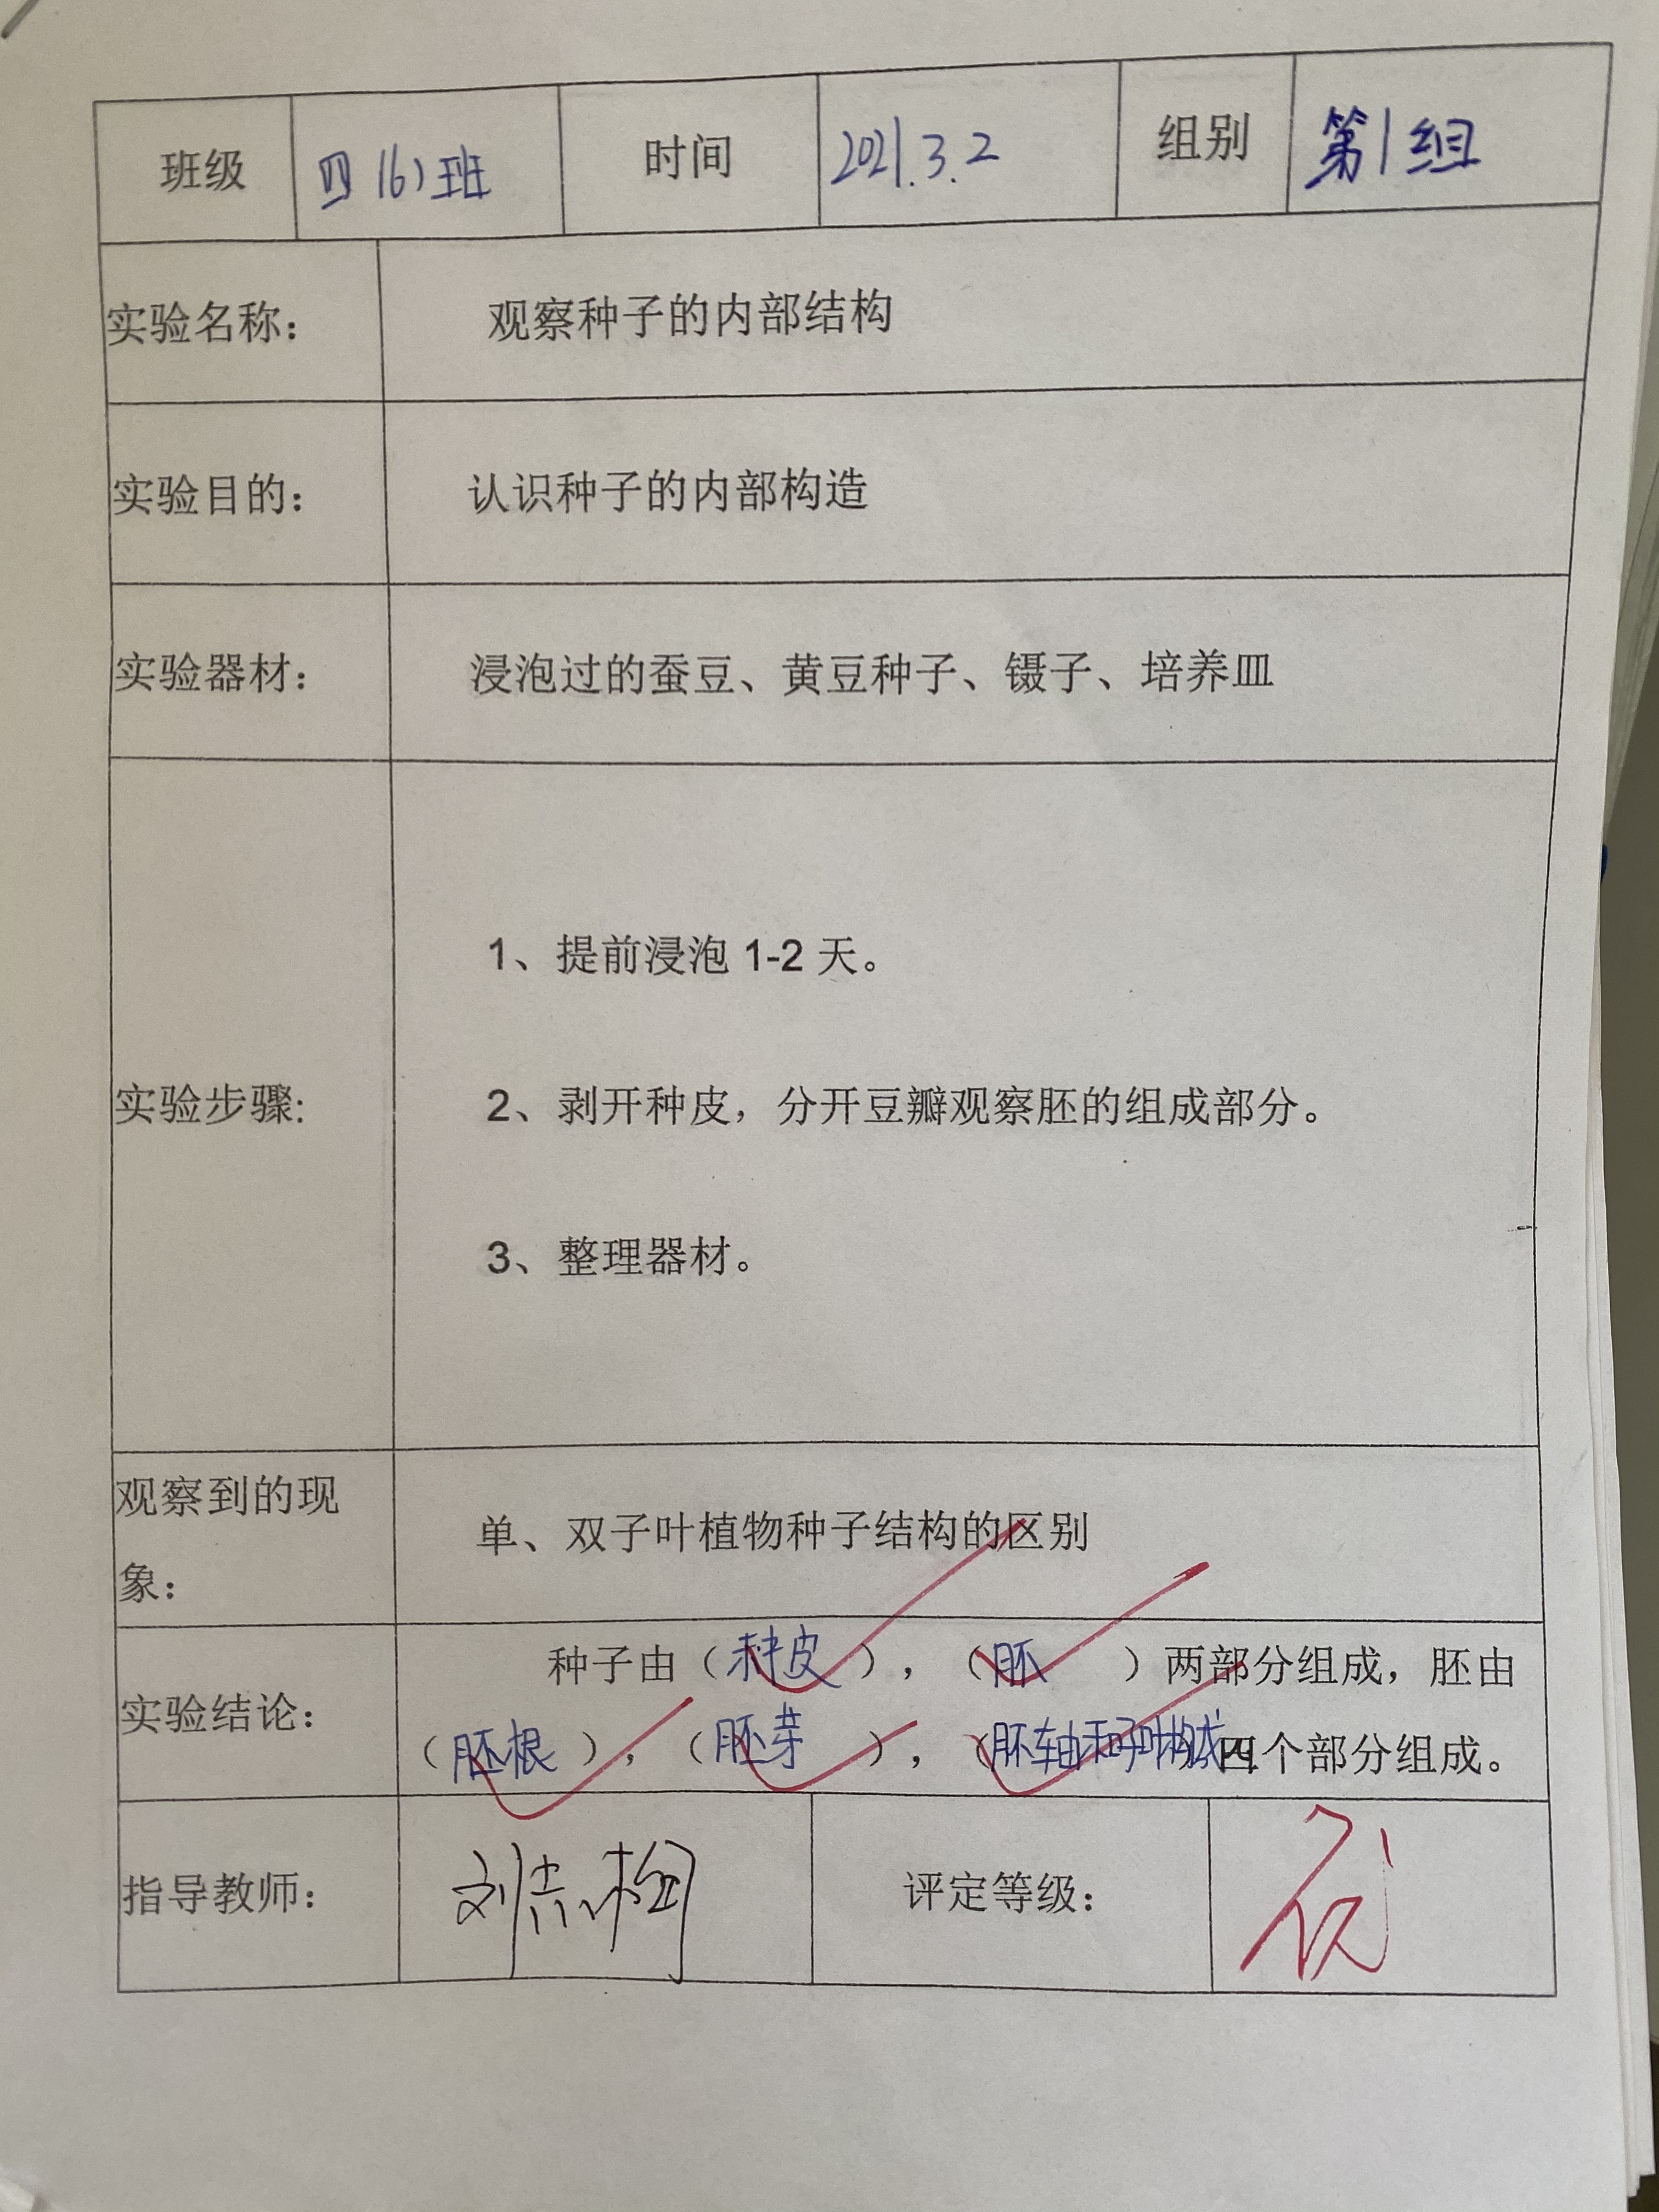 班级 四(6)班 时间 2021.3.2 组别 第1组
实验名称： 观察种子的内部结构
实验目的： 认识种子的内部构造
实验器材： 浸泡过的蚕豆、黄豆种子、镊子、培养皿
实验步骤:
1、提前浸泡 1-2 天。
2、剥开种皮，分开豆瓣观察胚的组成部分。
3、整理器材。
观察到的现
象：
单、双子叶植物种子结构的区别
实验结论：
种子由（种皮），（胚）两部分组成，胚由
（胚根），（胚芽），（胚轴和子叶构成）四个部分组成。
指导教师： 刘 评定等级： 优